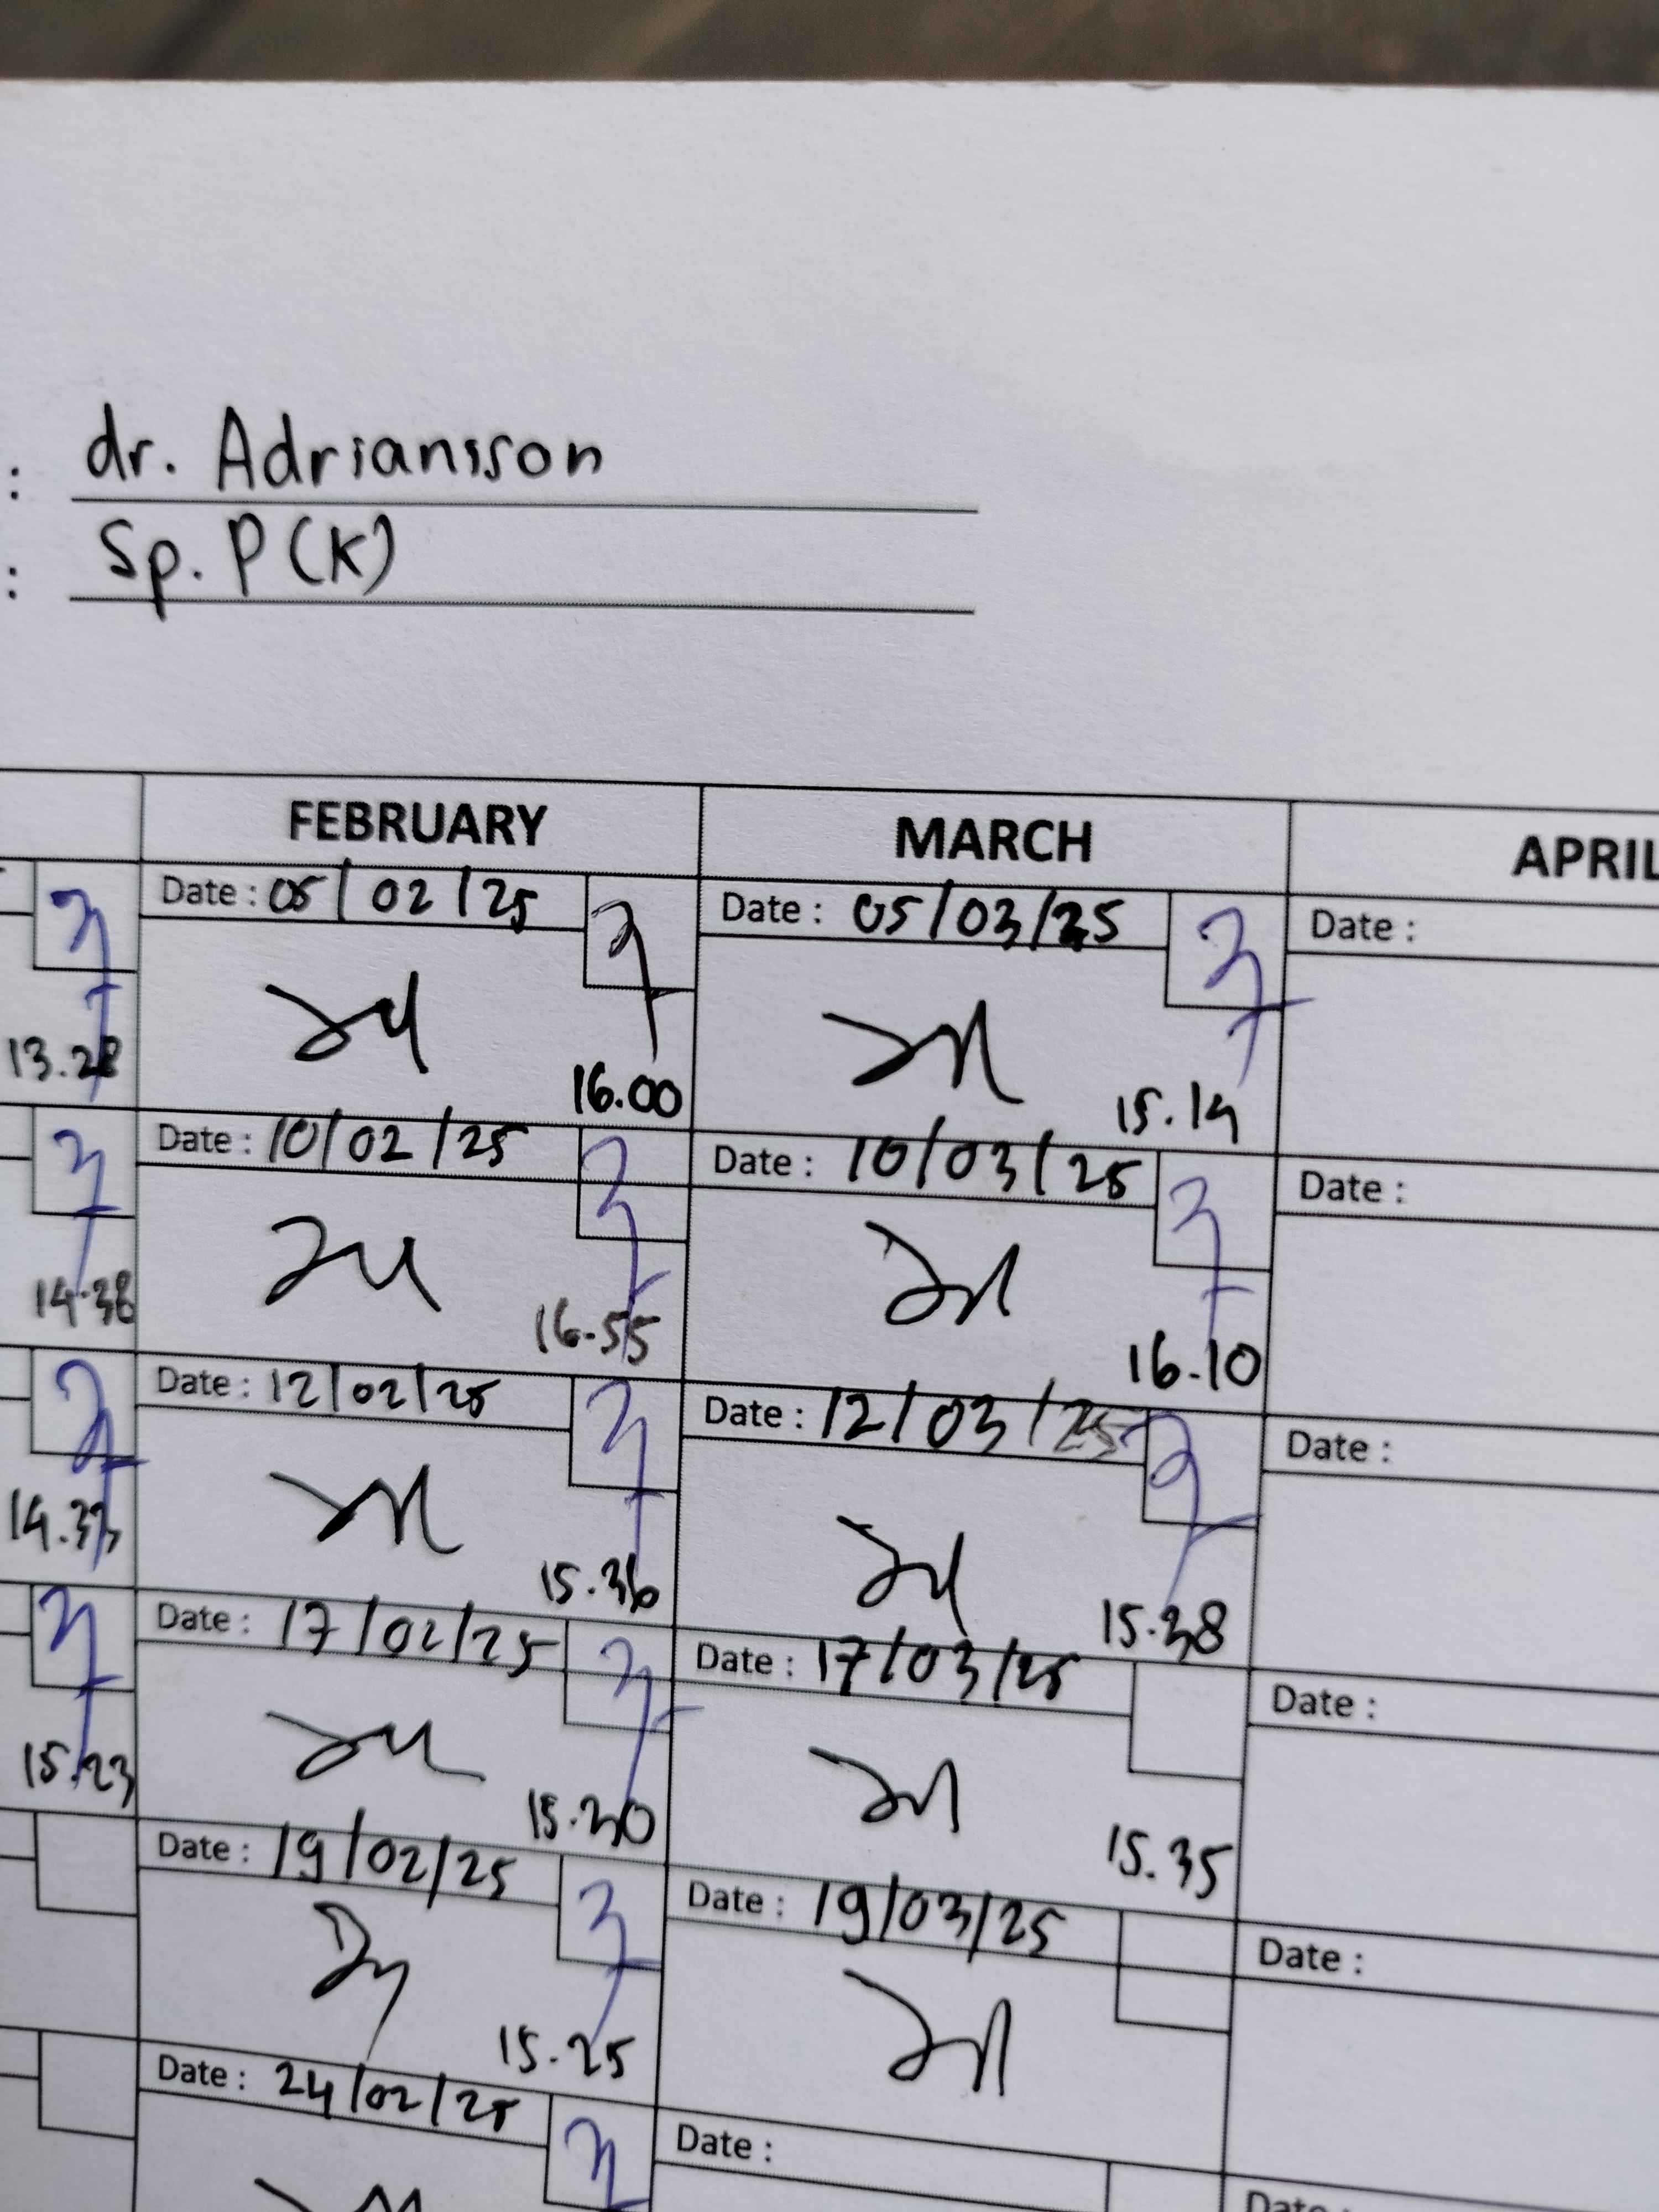 : dr. Adriansson
: Sp. P(K)
FEBRUARY MARCH APRIL
Date : 05/02/25 Date : 05/03/25 Date :
13.28 16.00 15.14
Date : 10/02/25 Date : 10/03/25 Date :
14.38 16.55 16.10
Date : 12/02/25 Date : 12/03/25 Date :
14.33 15.36 15.38
Date : 17/02/25 Date : 17/03/25 Date :
15.23 15.30 15.35
Date : 19/02/25 Date : 19/03/25 Date :
15.25
Date : 24/02/25 Date :